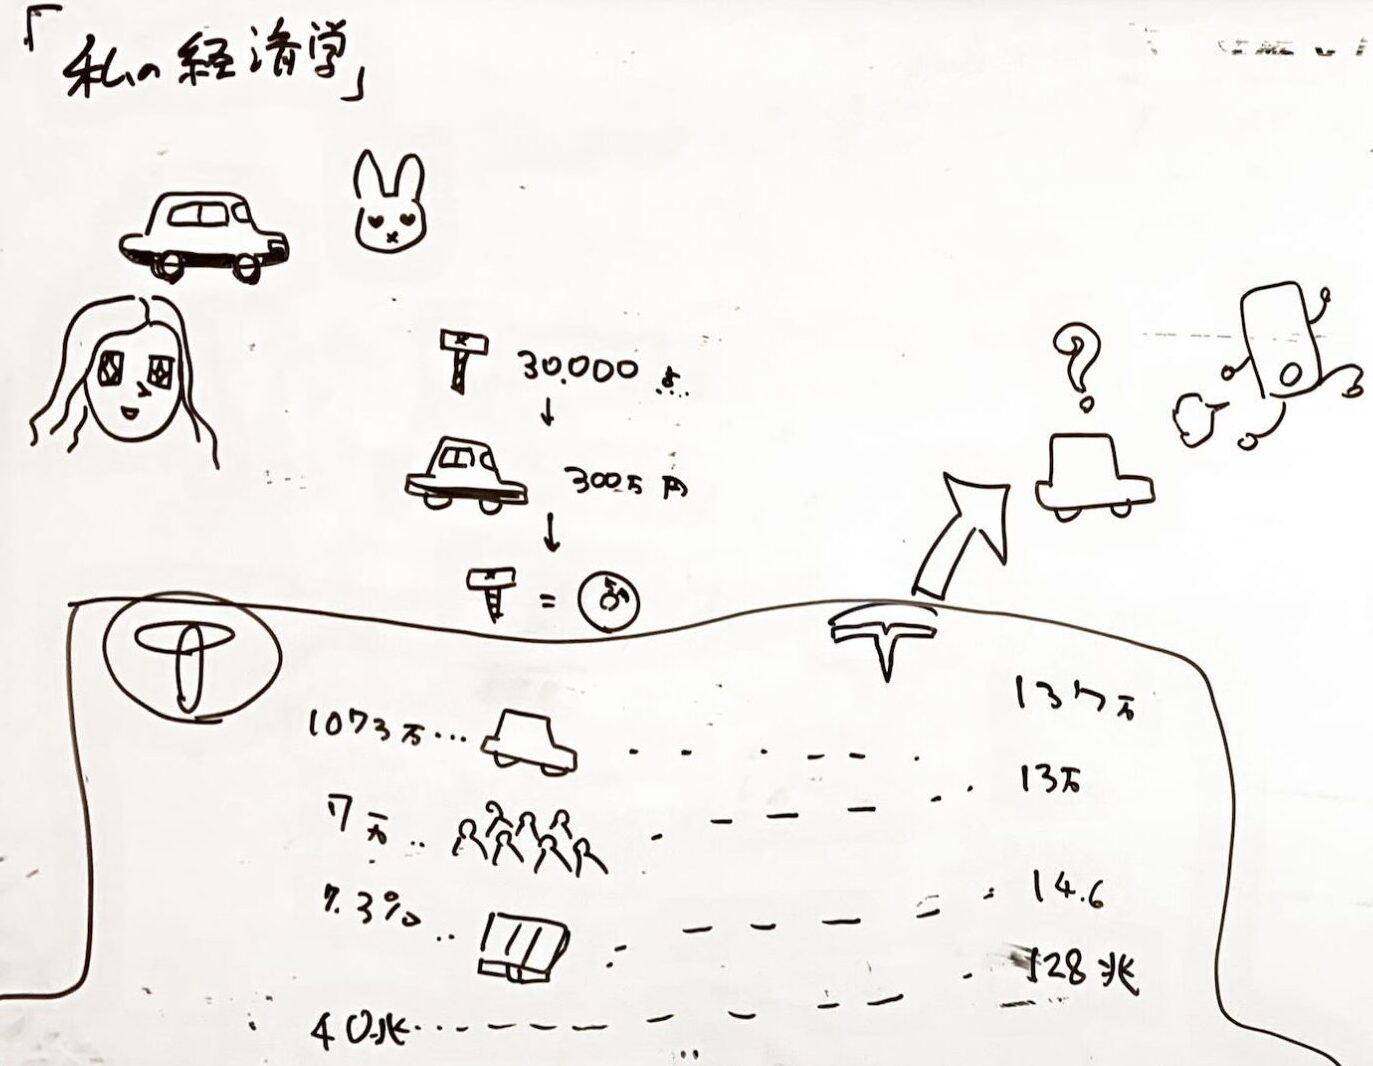 「私の経済学」
30.000
300万円
=
?
1073万… 137万
7万.. 13万
7.3%.. 14.6
40兆… 128兆